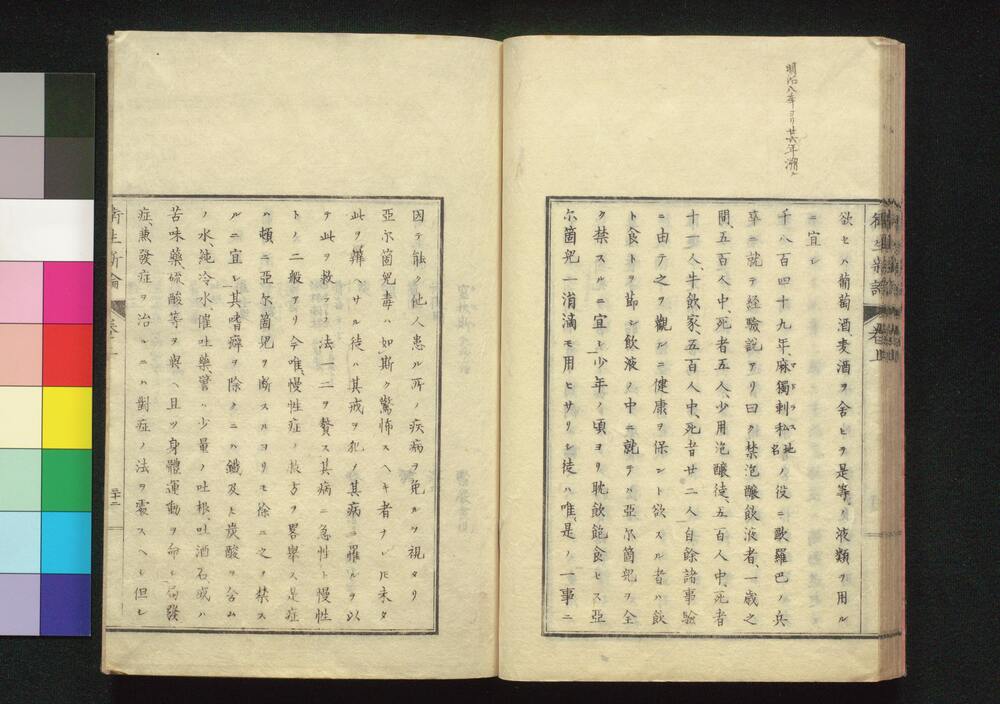 明治八年ヨリ廿六年溯ル
欲セハ葡萄酒麦酒ヲ舍ヒテ是等ノ液類ヲ用ル
ニ宜シ
千八百四十九年、麻獨剌私地名ノ役ニ歐羅巴ノ兵
マドラス
卒ニ就テ經驗說アリ曰ク禁泡釀飲液者、一歲之
間、五百人中、死者五人、少用泡釀徒、五百人中、死者
十一人、牛飲家、五百人中、死者廿二人自餘諸事驗
ニ由テ之ヲ觀ルニ健康ヲ保ント欲スル者ハ飲
ト食トヲ節シ飲液ノ中ニ就テハ亞尔箇兒ヲ全
ク禁スルニ宜シ少年ノ頃ヨリ耽飲飽食セス亞
尔箇兒一消滴モ用ヒサリシ徒ハ唯、是ノ一事ニ
因テ能ク他人患ル所ノ疾病ヲ免ルヲ視タリ
亞尔箇兒毒ハ如斯ク驚怖スヘキ者ナレ𪜈未タ
此ヲ辨ヘサル徒ハ其戒ヲ犯ノ其病ニ罹ルヲ以
テ此ヲ救ラフ法一二ヲ贅ス其病ニ急性ト慢性
トノ二般アリ今唯、慢性症ノ救方ヲ畧舉ス是症
ハ頓ニ亞尔箇兒ヲ断スルヨリモ徐ニ之ヲ禁ス
ルニ宜シ其嗜癖ヲ除クニハ鐵及ヒ炭酸ヲ含ム
ノ水、純冷水、催吐藥、譬ハ少量ノ吐根、吐酒石、或ハ
苦味藥、硫酸等ヲ與ヘ且ツ身體運動ヲ命シ局發
症、兼發症ヲ治ルニハ對症ノ法ヲ要スヘシ但シ
衛生新論
卷上
三十二